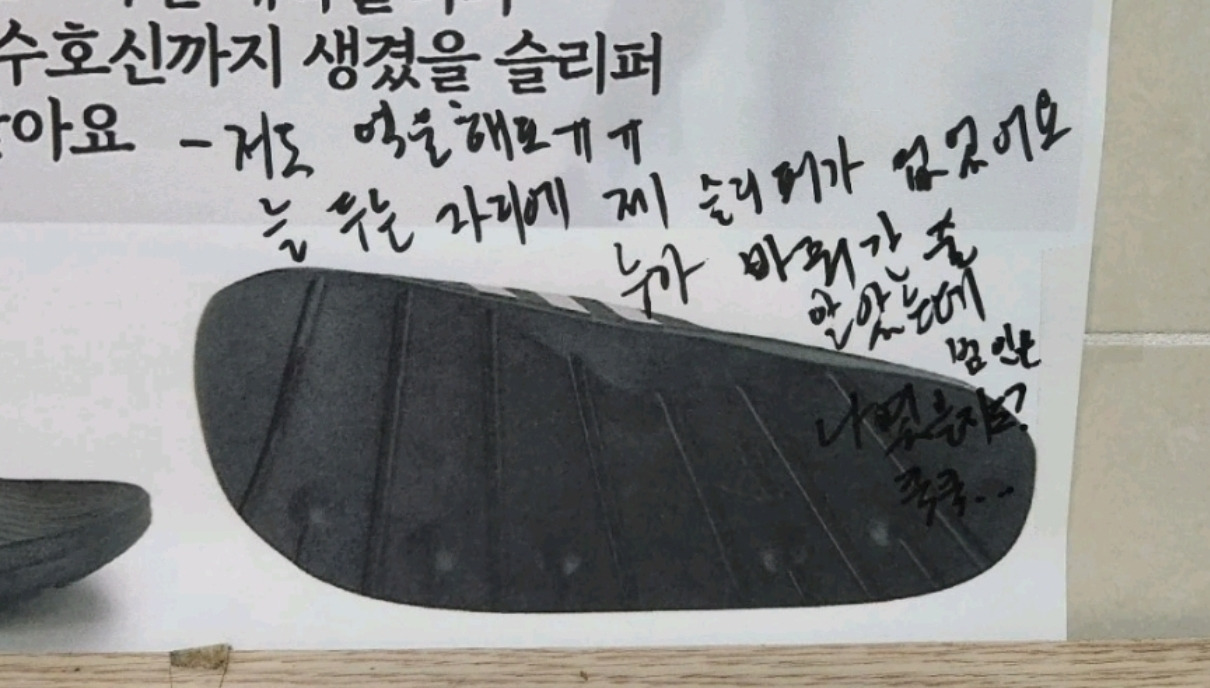 수호신까지 생겼을 슬리퍼
아요 - 저도 억울해요ㅠㅠ
늘 두는 자리에 제 슬리퍼가 없었어요
누가 바꿔간 줄
알았는데
범인은
나였는지도?
쿡쿡...